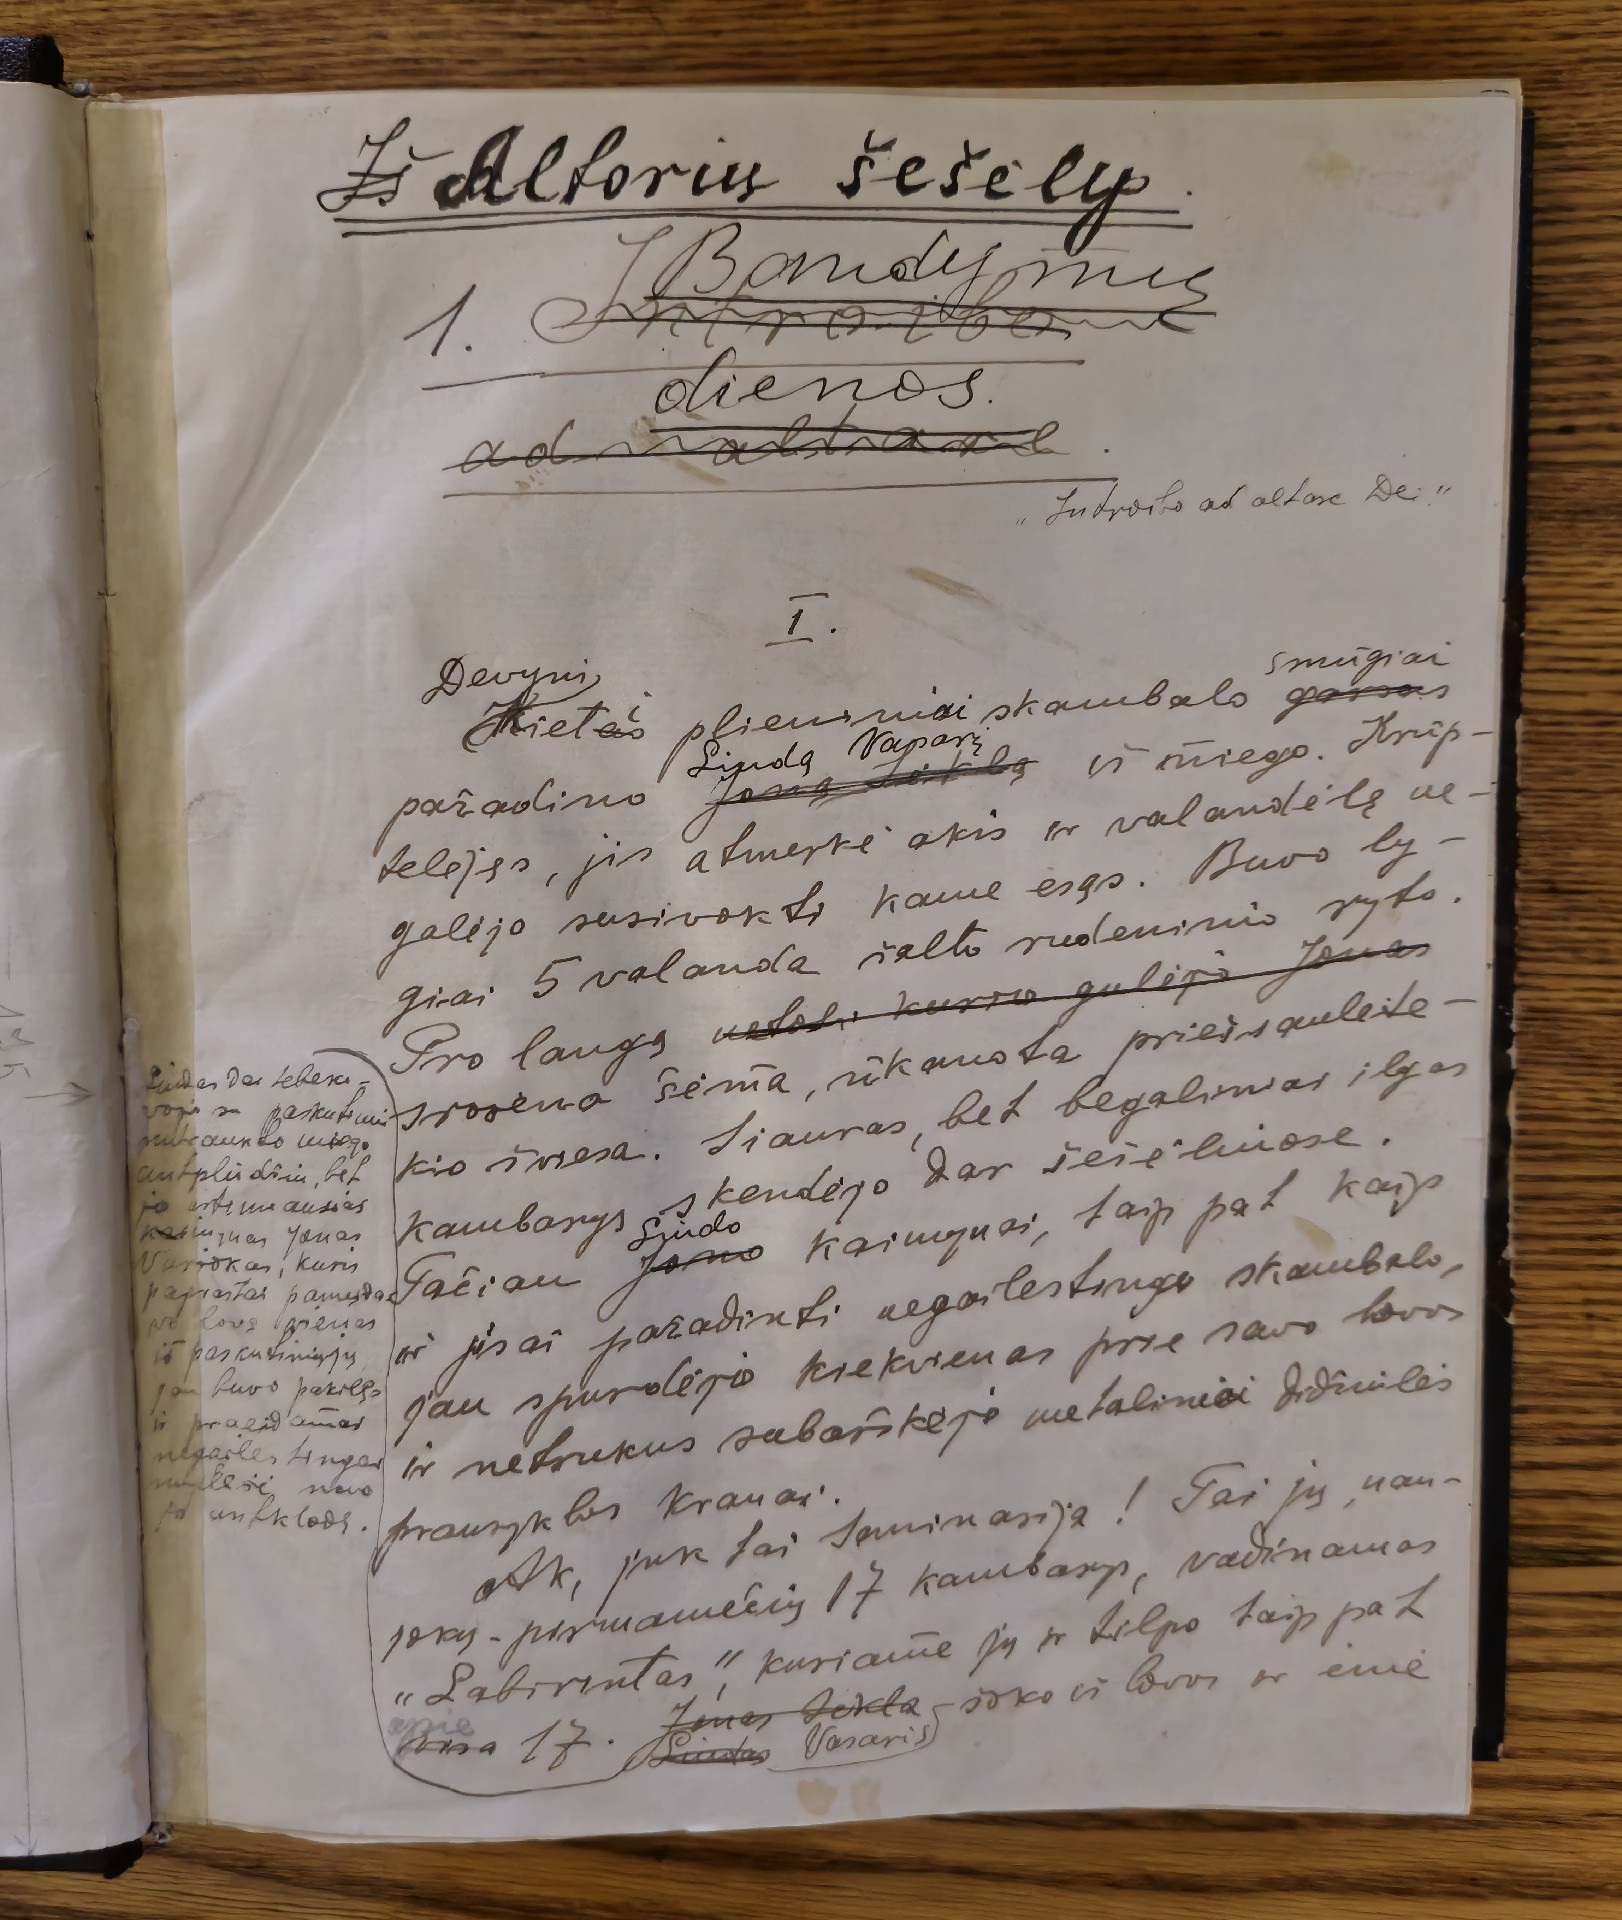 Iš Altorių šešėly.
Bandymų
1. Introibo
dienos.
ad altare.
„Introibo ad altare Dei"
I.
Devyni smūgiai
Kietas plieniniai skambalo garsas
Liudą Vasarį
pažadino Joną iš miego. Krūp-
telėjęs, jis atmerkė akis ir valandėlę ne-
galėjo susivokti kame esąs. Buvo ly-
giai 5 valanda šalto rudeninio ryto.
Pro langą netoli kurio gulėjo Jonas
sroveno šėma, ūkanota priešsaulėte-
kio šviesa. Siauras, bet begaliniai ilgas
kambarys skendėjo dar šešėliuose.
Liudo
Tačiau Jono kaimynai, taip pat kaip
ir jisai pažadinti negailestingo skambalo,
jau spurdėjo kiekvienas prie savo lovos
ir netrukus subarškėjo metaliniai didžiulės
prausyklos kranai.
Ak, juk tai seminarija! Tai jų, nau-
jokų-pirmamečių 17 kambarys, vadinamas
„Labirintas", kuriame jų ir tilpo taip pat
apie
visa 17. Jonas šoko iš lovos ir ėmė
Liudas Vasaris
Liudas dar tebeko-
vojo su paskutiniu
nutraukto miego
antplūdžiu, bet
jo artimiausias
kaimynas Jonas
Variokas, kuris
paprastai pamesda-
vo lovą vienas
iš paskutiniųjų
jau buvo pakilęs
ir praeidamas
negailestingai
nuplėšė nuo
jo antklodę.